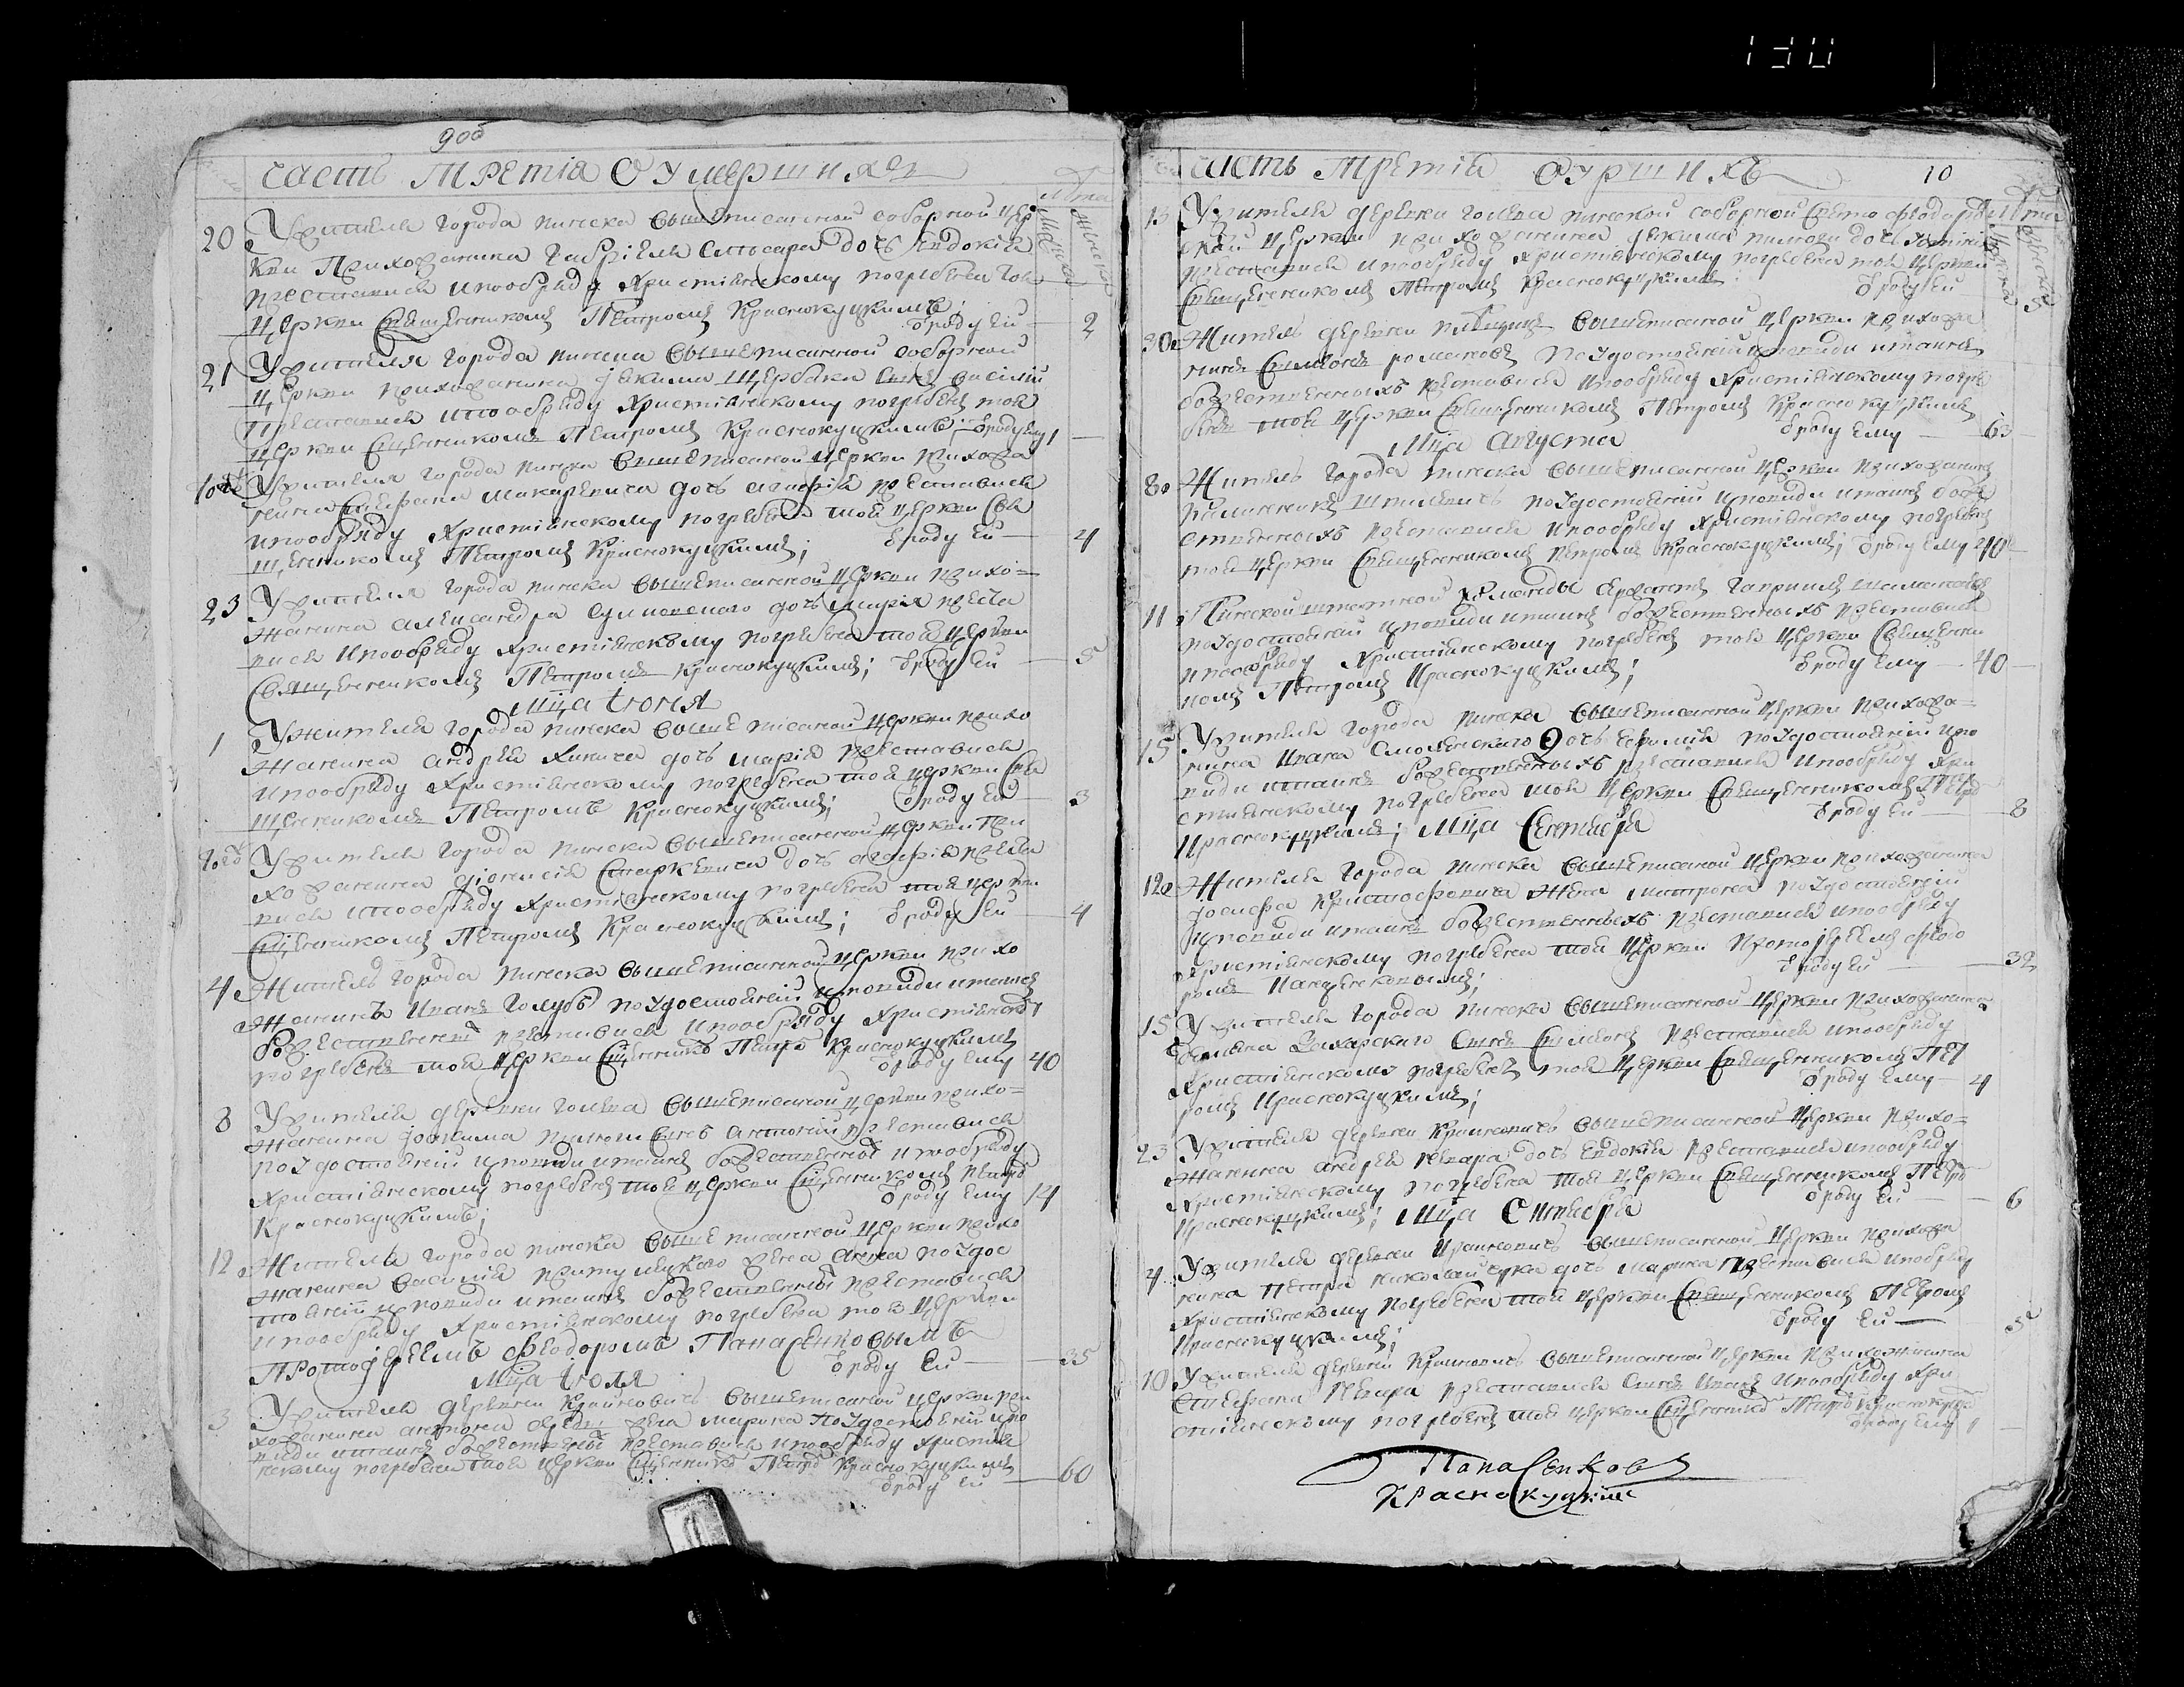 130
9об
часть Третiа О Умершихъ
лѣта
мужеска
женска
20 У жителя города пинска вышеписанной соборной цер
кви Прихожанина Гаврiила Слесара дочь Евдокiа
преставися и пообряду христiянскому погребена тоя
церкви Священникомъ Петромъ Краснокуцкимъ;
ѿроду ей 2
21 У жителя города пинска вышеписанной соборной
церкви прихожанина Iакима Щербака сынъ василiй
преставися и пообряду христiянскому погребенъ тоя
церкви Священникомъ Петромъ Краснокуцкимъ ѿроду ему 1
У жителя города пинска вышеписанной церкви прихожа
нина Стефана Макаревича дочь агафiя преставися
и пообряду христiянскому погребена тоя церкви Свя
щенникомъ Петромъ Краснокуцкимъ; ѿроду ей 4
23 У жителя города пинска вышеписанной церкви прихо=
жанина александра дочь марiя преста
вися и пообряду христiянскому погребена тоя церкви
Священникомъ Петромъ Краснокуцкимъ; ѿроду ей 5
Мца Iюня
1 У жителя города пинска вышеписанной церкви прихо
жанина андрея дочь марiя преставися
и пообряду христiянскому погребена тоя церкви Свя
щенникомъ Петромъ Краснокуцкимъ; ѿроду ей 3
У жителя города пинска вышеписанной церкви При
хожанина дiонисiя Старкевича дочь агафiя преста
вися и пообряду христiянскому погребена тоя церкви
Священникомъ Петромъ Краснокуцкимъ; ѿроду ей 4
4 Житель города пинска вышеписанной церкви прихо
жанинъ Иванъ Голубъ по удостоенiи исповѣди и таинъ
божественныхъ преставися и пообряду христiянскому
погребенъ тоя церкви Священникомъ Петромъ Краснокуцкимъ
ѿроду ему 40
8 У жителя деревни Голева вышеписанной церкви прихо=
жанина Iоакима сынъ антонiй преставися
по удостоенiи исповѣди и таинъ божественныхъ и пообряду
христiянскому погребенъ тоя церкви Священникомъ Петромъ
Краснокуцкимъ; ѿроду ему 14
12 Жителя города пинска вышеписанной церкви прихо
жанина василiя жена анна по удос
тоенiи исповѣди и таинъ божественныхъ преставися
и пообряду христiянскому погребена тоя церкви
Протоiереемъ Феодоромъ Панасенковымъ
ѿроду ей 35
Мца Iюля
3 У жителя деревни Крайновичъ вышеписанной церкви при
хожанина антона жена марина по удостоенiи испо
вѣди и таинъ божественныхъ преставися и пообряду христiян
скому погребена тоя церкви Священникомъ Петромъ Краснокуцкимъ
ѿроду ей 60
часть Третiа О Умршихъ 10
лѣта
мужеска
женска
13 У жителя деревни Голева пинской соборной Свято Феодоро
ской церкви прихожанина Iакима дочь
преставися и пообряду христiянскому погребена тоя церкви
Священникомъ Петромъ Краснокуцкимъ: ѿроду ей 3
30 Житель деревни вышеписанной церкви прихожа
нинъ Симеонъ романовъ по удостоенiи исповѣди и таинъ
божественныхъ преставися и пообряду христiянскому погре
бенъ тоя церкви Священникомъ Петромъ Краснокуцкимъ
ѿроду ему 63
Мца Августа
8 Житель города пинска вышеписанной церкви прихожанинъ
по удостоенiи исповѣди и таинъ боже
ственныхъ преставися и пообряду христiянскому погребенъ
тоя церкви Священникомъ Петромъ Краснокуцкимъ; ѿроду ему 40
11 Пинской штатной команды сержантъ Гаврiилъ
по удостоенiи исповѣди и таинъ божественныхъ преставися
и пообряду христiянскому погребенъ тоя церкви Священни
комъ Петромъ Краснокуцкимъ; ѿроду ему 40
15 У жителя города пинска вышеписанной церкви прихожа=
нина Ивана Смоленскаго дочь по удостоенiи испо
вѣди и таинъ божественныхъ преставися и пообряду хри
стiянскому погребена тоя церкви Священникомъ Петро
Краснокуцкимъ; ѿроду ей 8
Мца Сентября
12 Жителя города пинска вышеписанной церкви прихожанина
Iосифа Христофовича жена матрона по удостоенiи
исповѣди и таинъ божественныхъ преставися и пообряду
христiянскому погребена тоя церкви протоiереемъ Феодо
ромъ Панасенковымъ; ѿроду ей 32
15 У жителя города пинска вышеписанной церкви прихожанина
Захарскаго сынъ Симеонъ преставися и пообряду
христiянскому погребенъ тоя церкви Священникомъ Пет
ромъ Краснокуцкимъ; ѿроду ему 4
23 У жителя деревни Крайновичъ вышеписанной церкви прихо=
жанина андрея дочь Евдокiя преставися и пообряду
христiянскому погребена тоя церкви Священникомъ Петро
Краснокуцкимъ; ѿроду ей 6
Мца Октября
4 У жителя деревни Крайновичъ вышеписанной церкви прихожа
нина Петра дочь марина преставися и пообряду
христiянскому погребена тоя церкви Священникомъ Петромъ
Краснокуцкимъ; ѿроду ей 5
10 У жителя деревни Крайновичъ вышеписанной церкви прихожанина
Стефана преставися сынъ Иванъ и пообряду хри
стiянскому погребенъ тоя церкви Священникомъ Петромъ Краснокуцкимъ
ѿроду ему 1
Панасенковъ
Краснокуцкiй